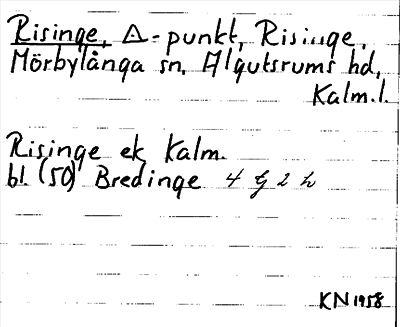 Risinge, △-punkt, Risinge,
Mörbylånga sn, Algutsrums hd,
Kalm.l.
Risinge ek Kalm.
bl. (50) Bredinge 4 g 2 h
KN 1958